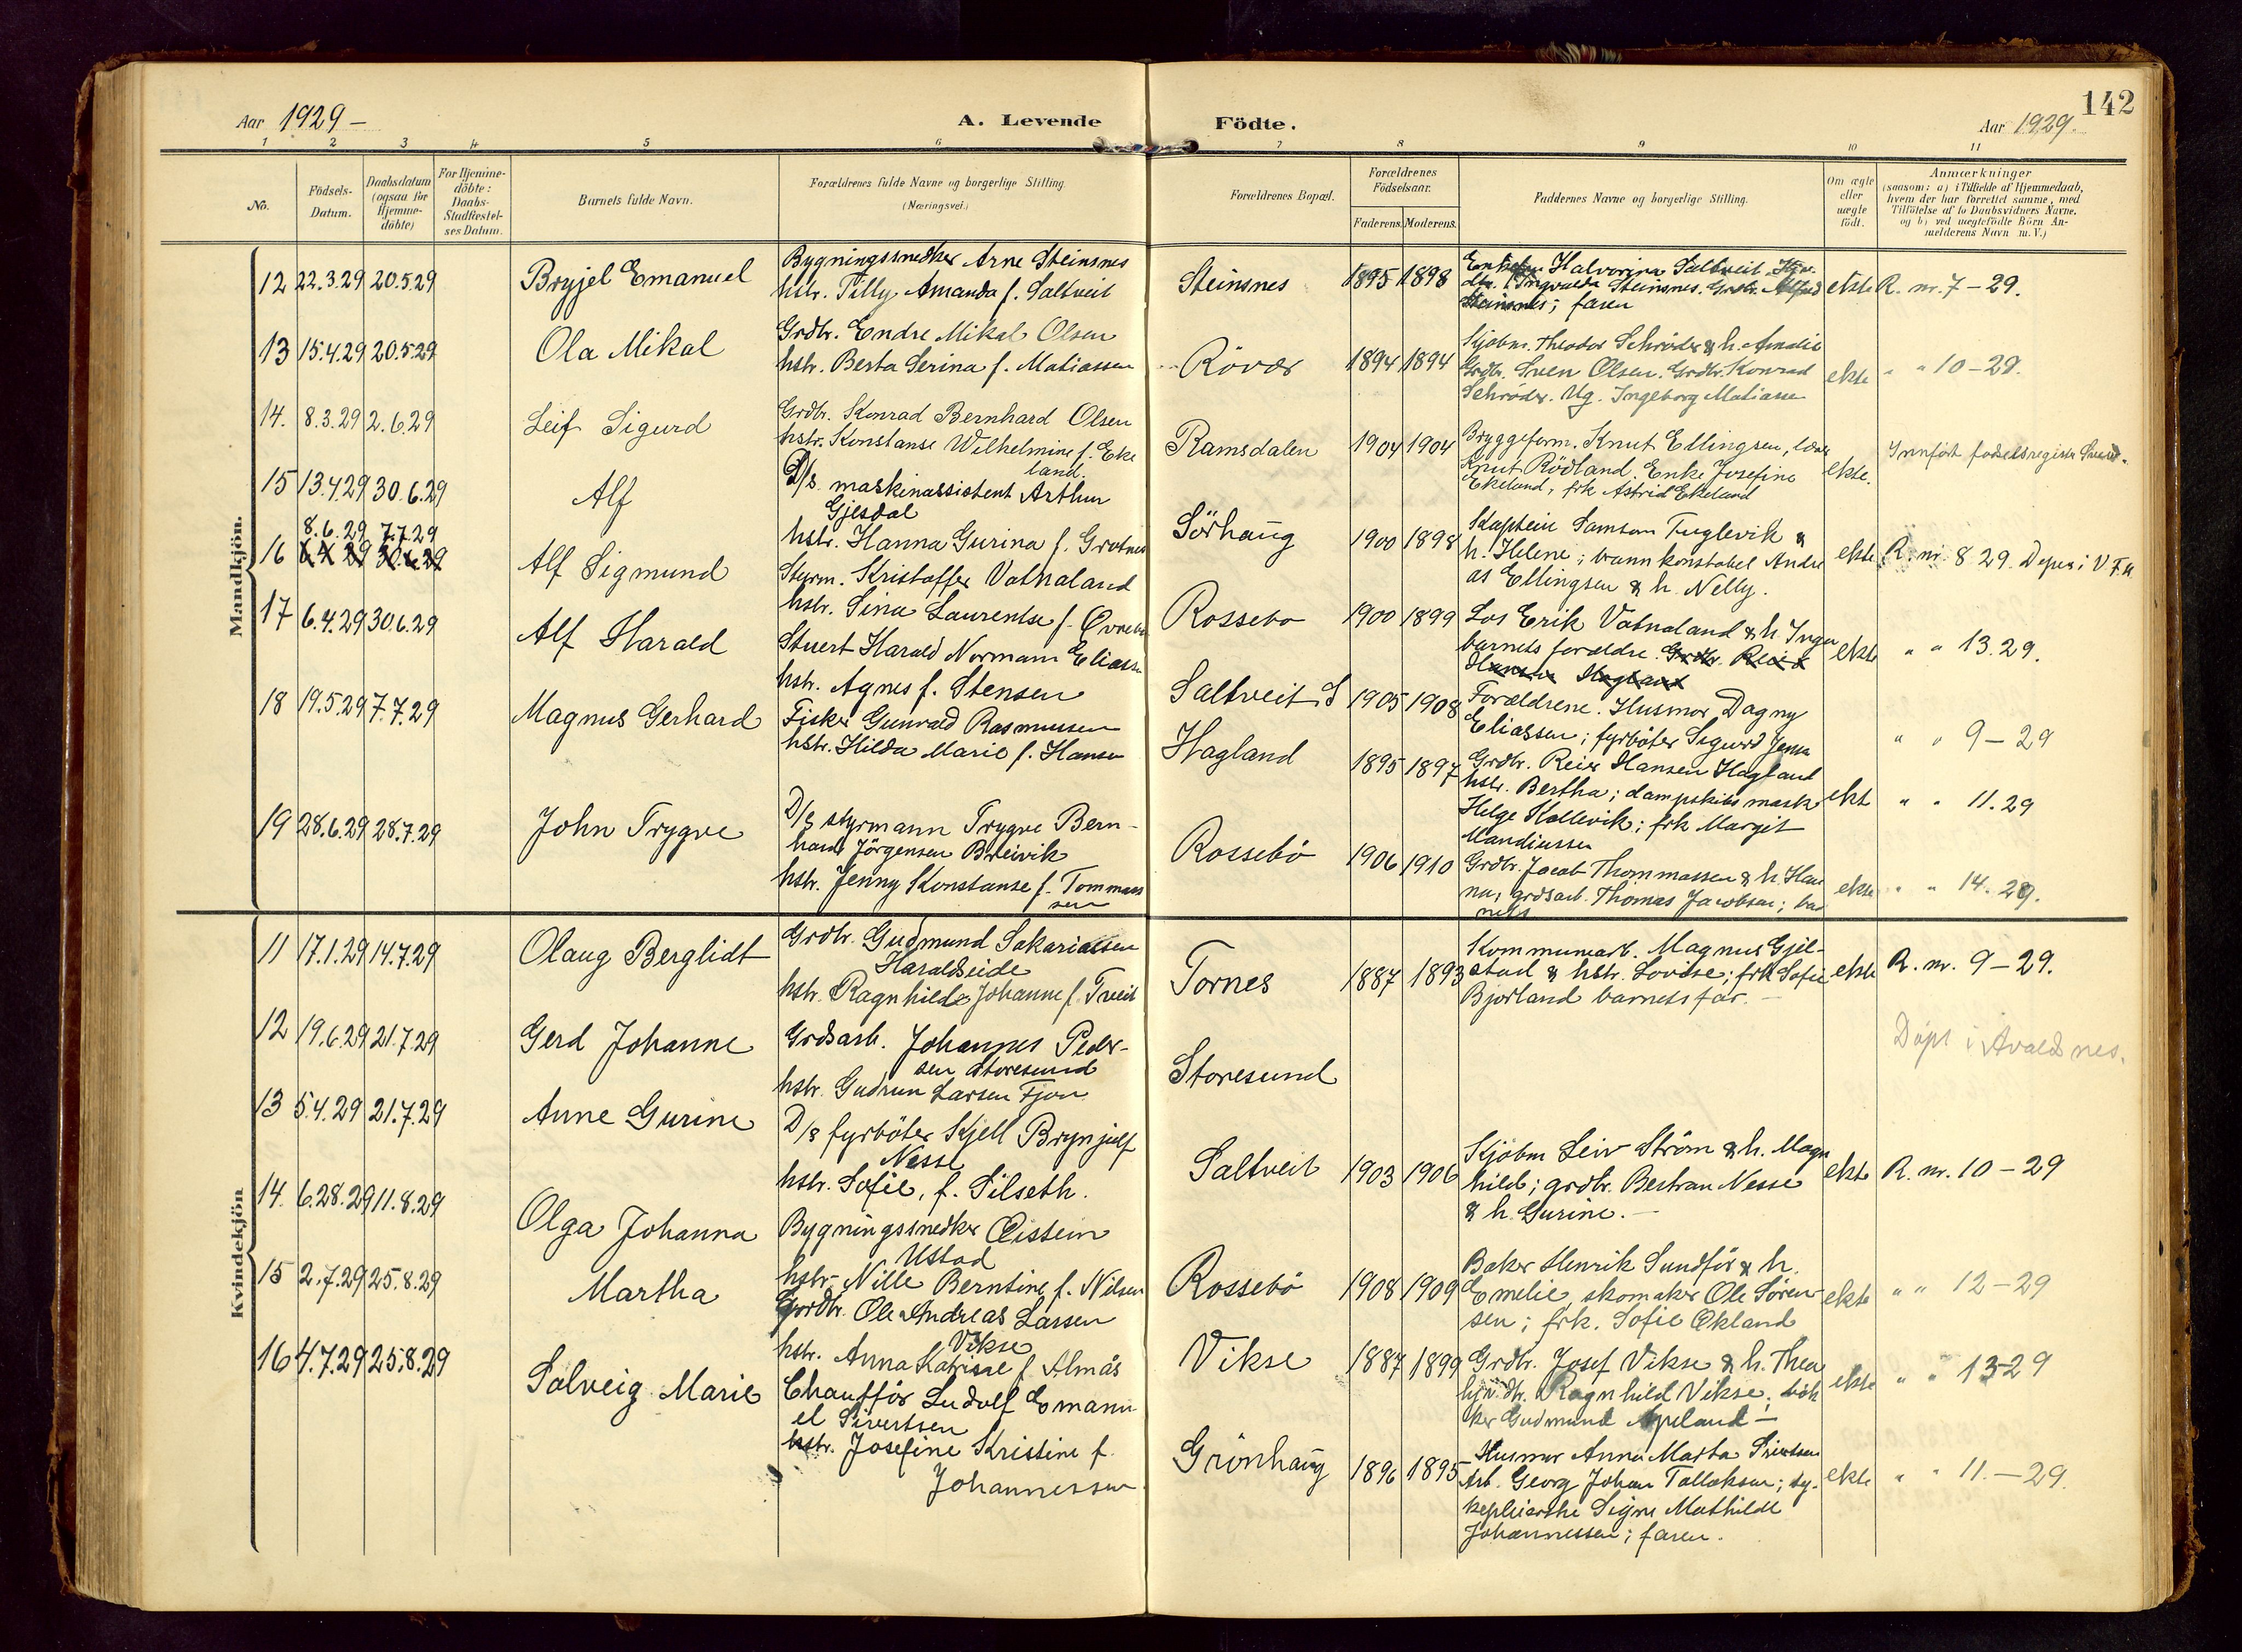 142
Aar 1929 –
A. Levende Födte.
Aar 1929.
1 2 3 4 5 6 7 8 9 10 11
No.
Födsels-Datum.
Daabsdatum (ogsaa for Hjemme-döbte)
For Hjemme-döbte: Daabs-Stadfæstel-ses Datum.
Barnets fulde Navn.
Forældrenes fulde Navne og borgerlige Stilling.
(Næringsvei.)
Forældrenes Bopæl.
Forældrenes Födselsaar.
Faderens. Moderens.
Faddernes Navne og borgerlige Stilling.
Om ægte eller uægte födt.
Anmærkninger
(saasom: a) i Tilfælde af Hjemmedaab,
hvem der har forrettet samme, med
Tilföielse af to Daabsvidners Navne.
og b) ved uægtefödte Börn An-
melderens Navn m. V.)
Mandkjön.
12 22.3.29 20.5.29 Bryjel Emanuel
Bygningssnedker Arne Steinsnes
hstr. Tilly Amanda f. Saltveit
Steinsnes 1895 1898
Halvorina Saltveit
Ingvalda Steinsnes. Grdbr. Alfred
Steinsnes; faren
ekte R. nr. 7 – 29.
13 15.4.29 20.5.29 Ola Mikal
Grdbr. Endre Mikal Olsen
hstr. Berta Serina f. Matiassen
Rövær 1894 1894
Kjøbm. Theodor Schröder & h. Amalie
Grdbr. Sven Olsen. Grdbr. Konrad
Schröder. Ug. Ingeborg Matiassen
ekte " " 10 – 29.
14. 8.3.29 2.6.29 Leif Sigurd
Grdbr. Konrad Bernhard Olsen
hstr. Konstanse Wilhelmine f. Eke
land
Ramsdalen 1904 1904
Bryggeform. Knut Ellingsen,
Knut Rödland, Enke Josefine
Ekeland, frk Astrid Ekeland
ekte. Innfört fødselsregister
15 13.4.29 30.6.29 Alf
D/s. maskinassistent Arthur
Gjesdal
hstr. Hanna Gurina f. Grotnes
Sörhaug 1900 1898
Kaptein Samson Fuglevik &
h. Helene; brann konstabel Andre
as Ellingsen & h. Nelly.
ekte R. nr. 8 29. Døpt i V F k
16 8.6.29 7.7.29 Alf Sigmund
6.4.29 30.6.29
Styrm. Kristoffer Vatnaland
hstr. Sina Laurentse f. Övrebö
Rossebo 1900 1899
Los Erik Vatnaland & h. Inga
barnets foreldre. Grdbr. Reier
Hansen Hagland
ekte " " 13. 29.
17 6.4.29 30.6.29 Alf Harald
Stuert Harald Normann Eliassen
hstr. Agnes f. Stensen
Saltveit S 1905 1908
Forældrene. Husmor Dagny
Eliassen; fyrböter Sigurd Jensen
" " 9 – 29
18 19.5.29 7.7.29 Magnus Gerhard
Fisker Gunvald Rasmussen
hstr. Hilda Marie f. Hansen
Hagland 1895 1897
Grdbr. Reier Hansen Hagland
hstr. Bertha; dampskibs mask
Helge Hallevik; frk Margit
Mandiussen
ekte " " 11. 29
19 28.6.29 28.7.29 John Trygve
D/s styrmann Trygve Bern-
hard Jörgensen Breivik
hstr. Jenny Konstanse f. Tommas
sen
Rossebö 1906 1910
Grdbr. Jacob Thommassen & h. Han
na, grdsarb. Thomas Jacobsen; bar
nets
ekte " " 14. 29.
Kvindekjön
11 17.1.29 14.7.29 Olaug Berglidt
Grdbr. Gudmund Sakariassen
Haraldseide
hstr. Ragnhilda Johanne f. Tveit
Tornes 1887 1893
Kommunearb. Magnus Gjil-
stad & hstr. Lovise; frk Sofie
Bjorland barnets far. –
ekte R. nr. 9 – 29.
12 19.6.29 21.7.29 Gerd Johanne
Grdsarb. Johannes Peder-
sen Storesund
hstr. Gudrun Larsen Fjon
Storesund
Döpt i Avaldsnes.
13 5.4.29 21.7.29 Anne Gurine
D/s fyrböter Kjell Brynjulf
Nesse
hstr. Sofie, f. Silseth.
Saltveit 1903 1906
Kjöbm Leiv Ström & h. Magn
hild; grdbr. Bertran Nesse
& h. Gurine. –
ekte R. nr. 10 – 29
14. 6.28.29 11.8.29 Olga Johanna
Bygningssnedker Øistein
Ustad
hstr. Nille Berntine f. Nilsen
Rossebö 1908 1909
Baker Henrik Sundför & h.
Emelie, skomaker Ole Sören-
sen; frk. Sofie Økland
ekte " " 12 – 29
15 2.7.29 25.8.29 Martha
Grdbr. Ole Andreas Larsen
Vikse
hstr. Anna Katrine f. Almås
Vikse 1887 1899
Grdbr. Josef Vikse & h. Thea
hjv. dtr. Ragnhild Vikse, böt
ker Gudmund Apeland –
ekte " " 13 29
16 4.7.29 25.8.29 Solveig Marie
Chaufför Ludolf Emanu
el Sivertsen
hstr. Josefine Kristine f.
Johannessen
Grönhaug 1896 1895
Husmor Anna Marta Sivertsen
Arb. Georg Johan Tollaksen; sy-
kepleierske Signe Mathilde
Johannessen; faren.
ekte " " 11. – 29.